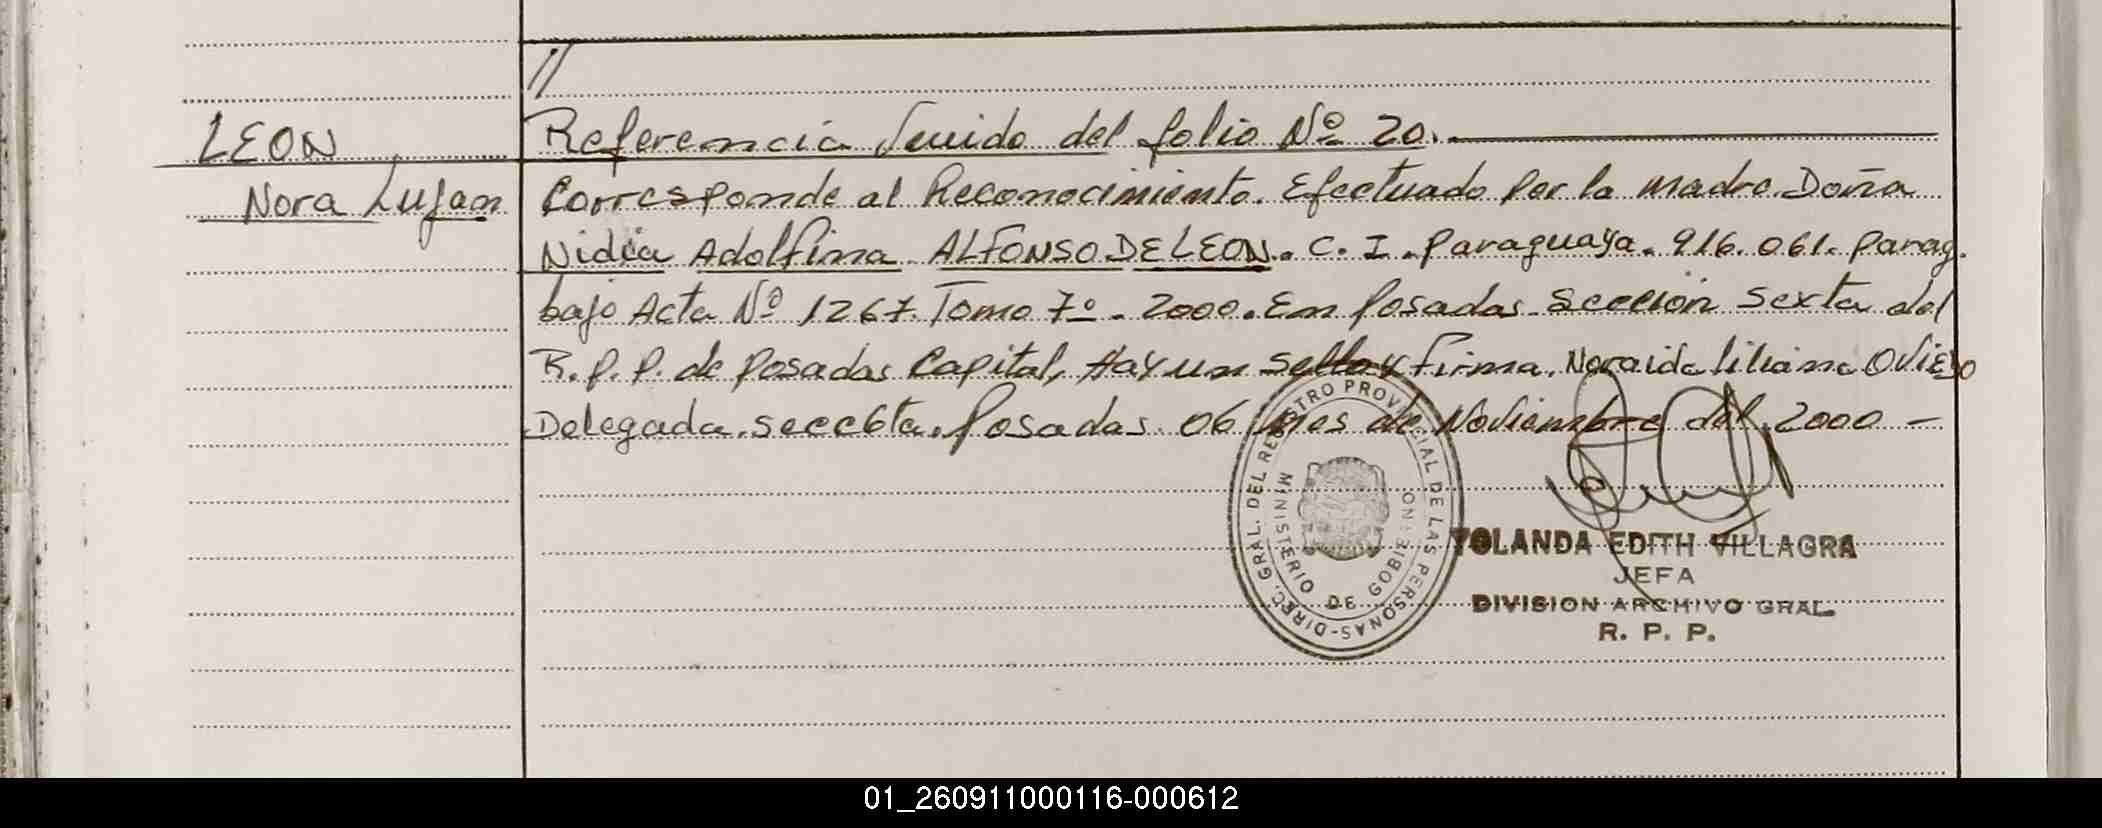 //
LEON Referencia del folio Nº 20.
Nora Lujan Corresponde al Reconocimiento. Efectuado por la madre. Doña
Nidia Adolfina ALFONSO DE LEON. C. I. Paraguaya. 916.061. Parag.
bajo Acta Nº 1267. Tomo 7º. 2000. En Posadas. Sección Sexta del
R. P. P. de Posadas Capital, Hay un sello y firma. Noraida liliana Oviedo
Delegada. secc 6ta. Posadas. 06 mes de Noviembre del 2000 -
DIREC. GRAL. DEL REGISTRO PROVINCIAL DE LAS PERSONAS -
MINISTERIO DE GOBIERNO
YOLANDA EDITH VILLAGRA
JEFA
DIVISION ARCHIVO GRAL.
R. P. P.
01_260911000116-000612